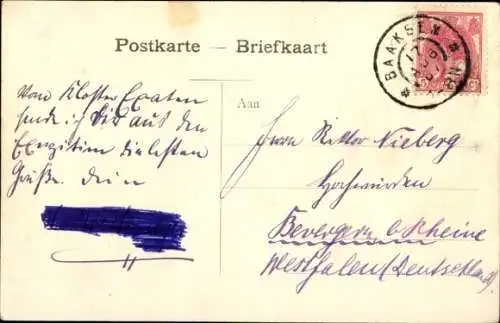 Postkarte — Briefkaart
BAAKSEM
Aan
Vom Kloster Exaaten
sende ich Dir aus den
Exerzitien die besten
Grüße. Dein
Herrn Rektor Nieberg
Hochwürden
Bevergern b. Rheine
Westfalen (Deutschland).